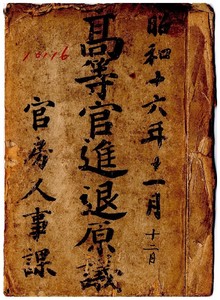 昭和十六年十一月
十二月
高等官進退原議
官房人事課
10116